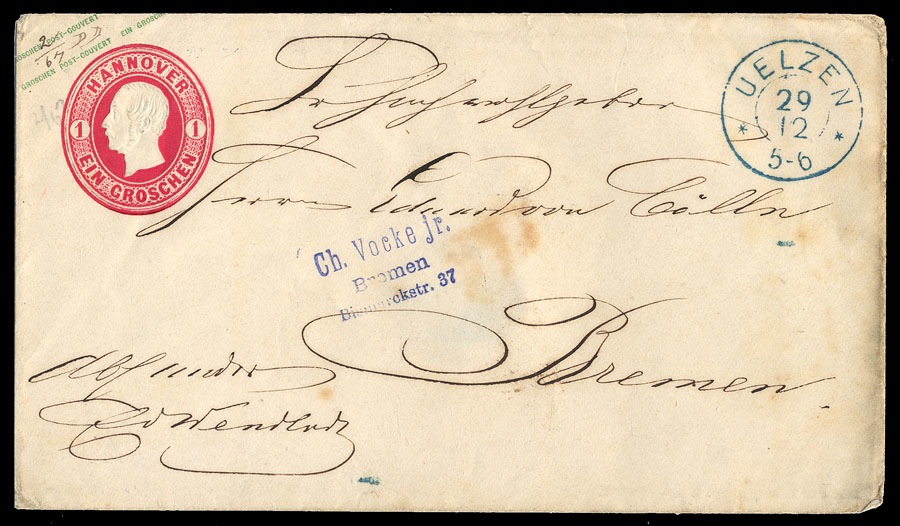 GROSCHEN POST-COUVERT EIN GROSCHEN
GROSCHEN POST-COUVERT EIN GROSCHEN
2
64
HANNOVER
1 1
EIN GROSCHEN
UELZEN
29
12
5-6
* *
Sr Hochwohlgeboren
Herrn Eduard von Cölln
Ch. Vocke jr.
Bremen
Bismarckstr. 37
Bremen.
Absender
Ed Wendlodt